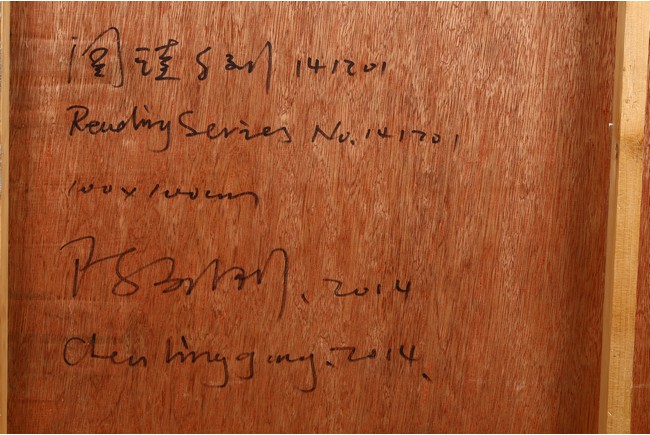 阅读系列 141201
Reading Series No.141201
100x100cm
2014
Chen 2014.